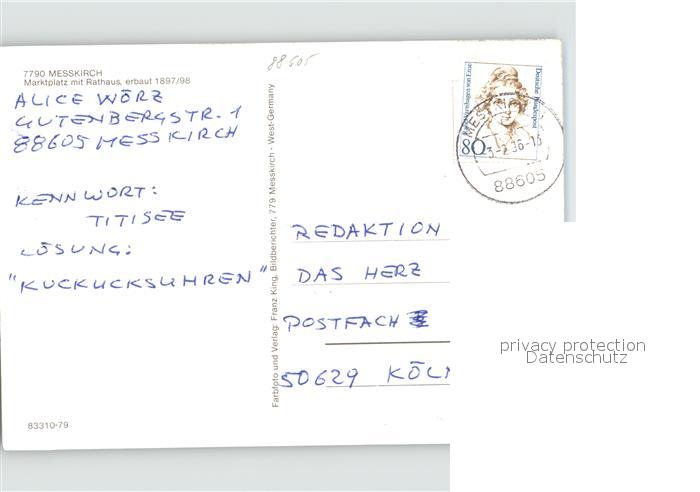 88605
7790 MESSKIRCH
Marktplatz mit Rathaus, erbaut 1897/98
ALICE WÖRZ
GUTENBERGSTR. 1
88605 MESSKIRCH
KENNWORT:
TITISEE
LÖSUNG:
"KUCKUCKSUHREN"
83310-79
Farbfoto und Verlag: Franz King, Bildberichter, 779 Messkirch - West-Germany
Deutsche Bundespost
80
88605
REDAKTION
DAS HERZ
POSTFACH
50629 KÖLN
privacy protection
Datenschutz